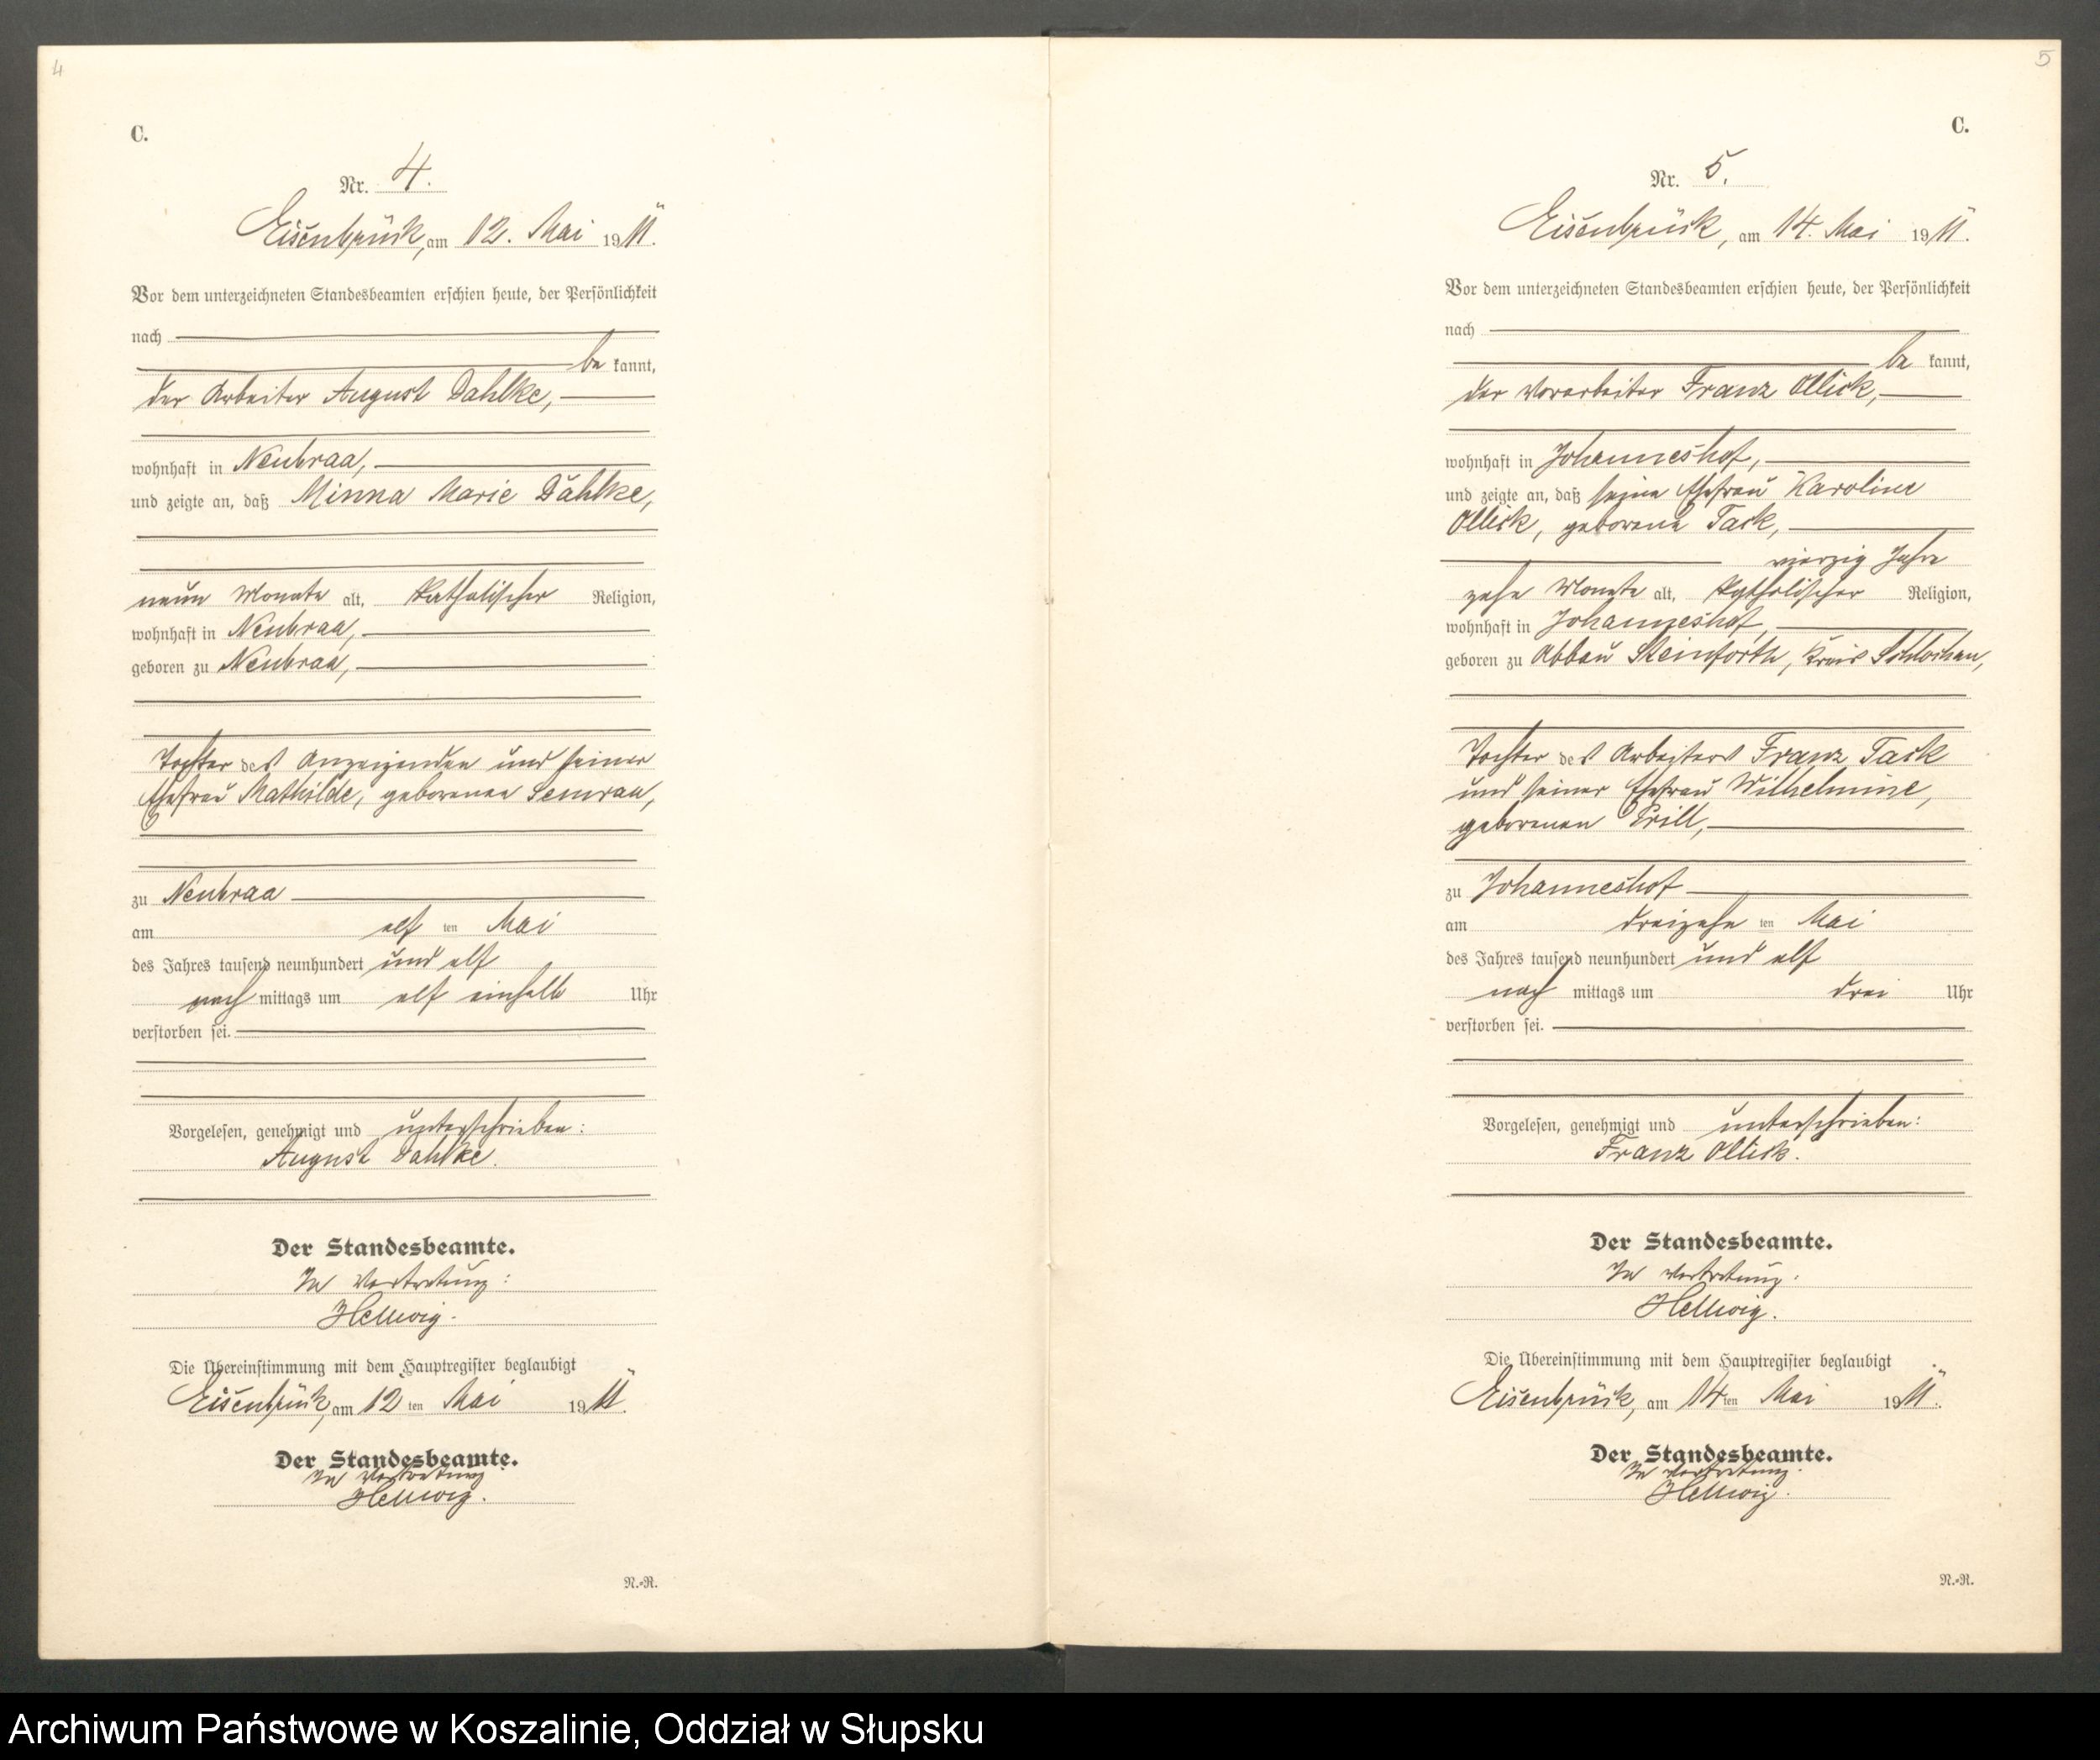 4
C.
Nr. 4.
Eisenbrück, am 12. Mai 1911.
Vor dem unterzeichneten Standesbeamten erschien heute, der Persönlichkeit
nach
be kannt,
der Arbeiter August Dahlke,
wohnhaft in Neubraa,
und zeigte an, daß Minna Marie Dahlke,
neun Monate alt, katholischer Religion,
wohnhaft in Neubraa,
geboren zu Neubraa,
Tochter des Anzeigenden und seiner
Ehefrau Mathilde, geborenen Semrau,
zu Neubraa
am elf ten Mai
des Jahres tausend neunhundert und elf
nach mittags um elf einhalb Uhr
verstorben sei.
Vorgelesen, genehmigt und unterschrieben:
August Dahlke.
Der Standesbeamte.
In Vertretung:
Hellwig.
Die Übereinstimmung mit dem Hauptregister beglaubigt
Eisenbrück, am 12 ten Mai 1911.
Der Standesbeamte.
In Vertretung
Hellwig.
N.-R.
5
C.
Nr. 5.
Eisenbrück, am 14. Mai 1911.
Vor dem unterzeichneten Standesbeamten erschien heute, der Persönlichkeit
nach
be kannt,
der Vorarbeiter Franz Ollick,
wohnhaft in Johanneshof,
und zeigte an, daß seine Ehefrau Karoline
Ollick, geborene Tack,
vierzig Jahre
zehn Monate alt, katholischer Religion,
wohnhaft in Johanneshof,
geboren zu Abbau Steinforth, Kreis Schlochau,
Tochter des Arbeiters Franz Tack
und seiner Ehefrau Wilhelmine,
geborenen Prill,
zu Johanneshof
am dreizehn ten Mai
des Jahres tausend neunhundert und elf
nach mittags um drei Uhr
verstorben sei.
Vorgelesen, genehmigt und unterschrieben:
Franz Ollick.
Der Standesbeamte.
In Vertretung:
Hellwig.
Die Übereinstimmung mit dem Hauptregister beglaubigt
Eisenbrück, am 14 ten Mai 1911.
Der Standesbeamte.
In Vertretung:
Hellwig.
N.-R.
Archiwum Państwowe w Koszalinie, Oddział w Słupsku